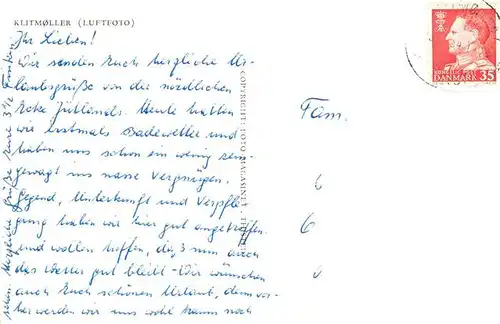 KLITMØLLER (LUFTFOTO)
Ihr Lieben!
Wir senden Euch herzliche Ur-
laubsgrüße von der nördlichen
Ecke Jütlands. Heute hatten
wir erstmals Badewetter und
haben uns schon ein wenig rein-
gewagt ins nasse Vergnügen.
Gegend, Unterkunft und Verpfle
gung haben wir hier gut angetroffen
und wollen hoffen, daß nun auch
das Wetter gut bleibt - Wir wünschen
auch Euch schönen Urlaub, denn vor-
her werden wir uns wohl kaum noch
sehen. Herzliche Grüße Eure 3 1/2 Finken
COPYRIGHT: FOTO
Fam.
6
KONGELIG POST
DANMARK 35